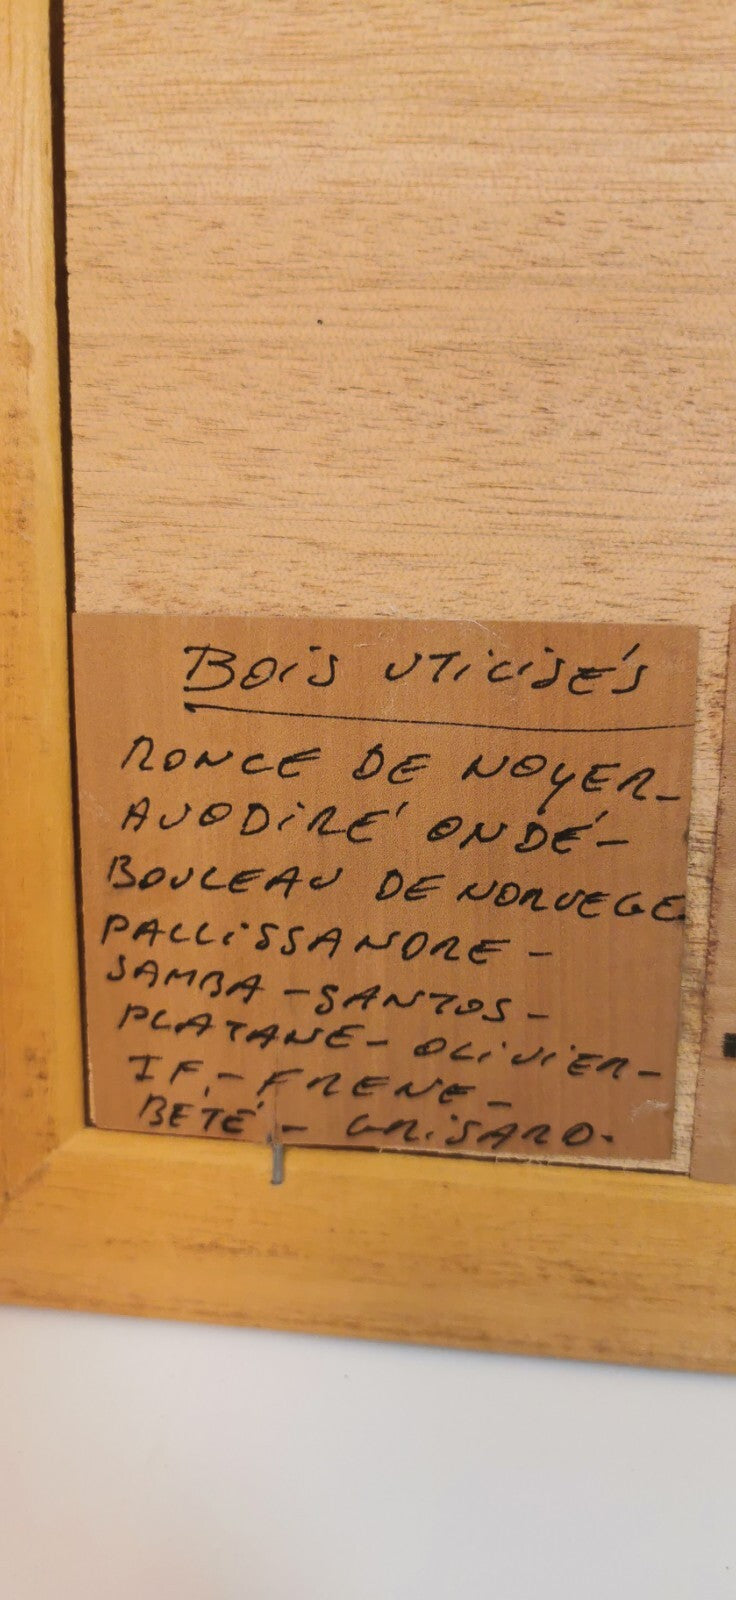 BOiS UTiLiSÉS
RONCE DE NOYER-
AVODiRÉ ONDÉ-
BOULEAU DE NORVEGE
PALLiSSANDRE -
SAMBA - SANTOS -
PLATANE - OLiViER -
IF. - FRENE -
BÉTÉ - GRiSARD.